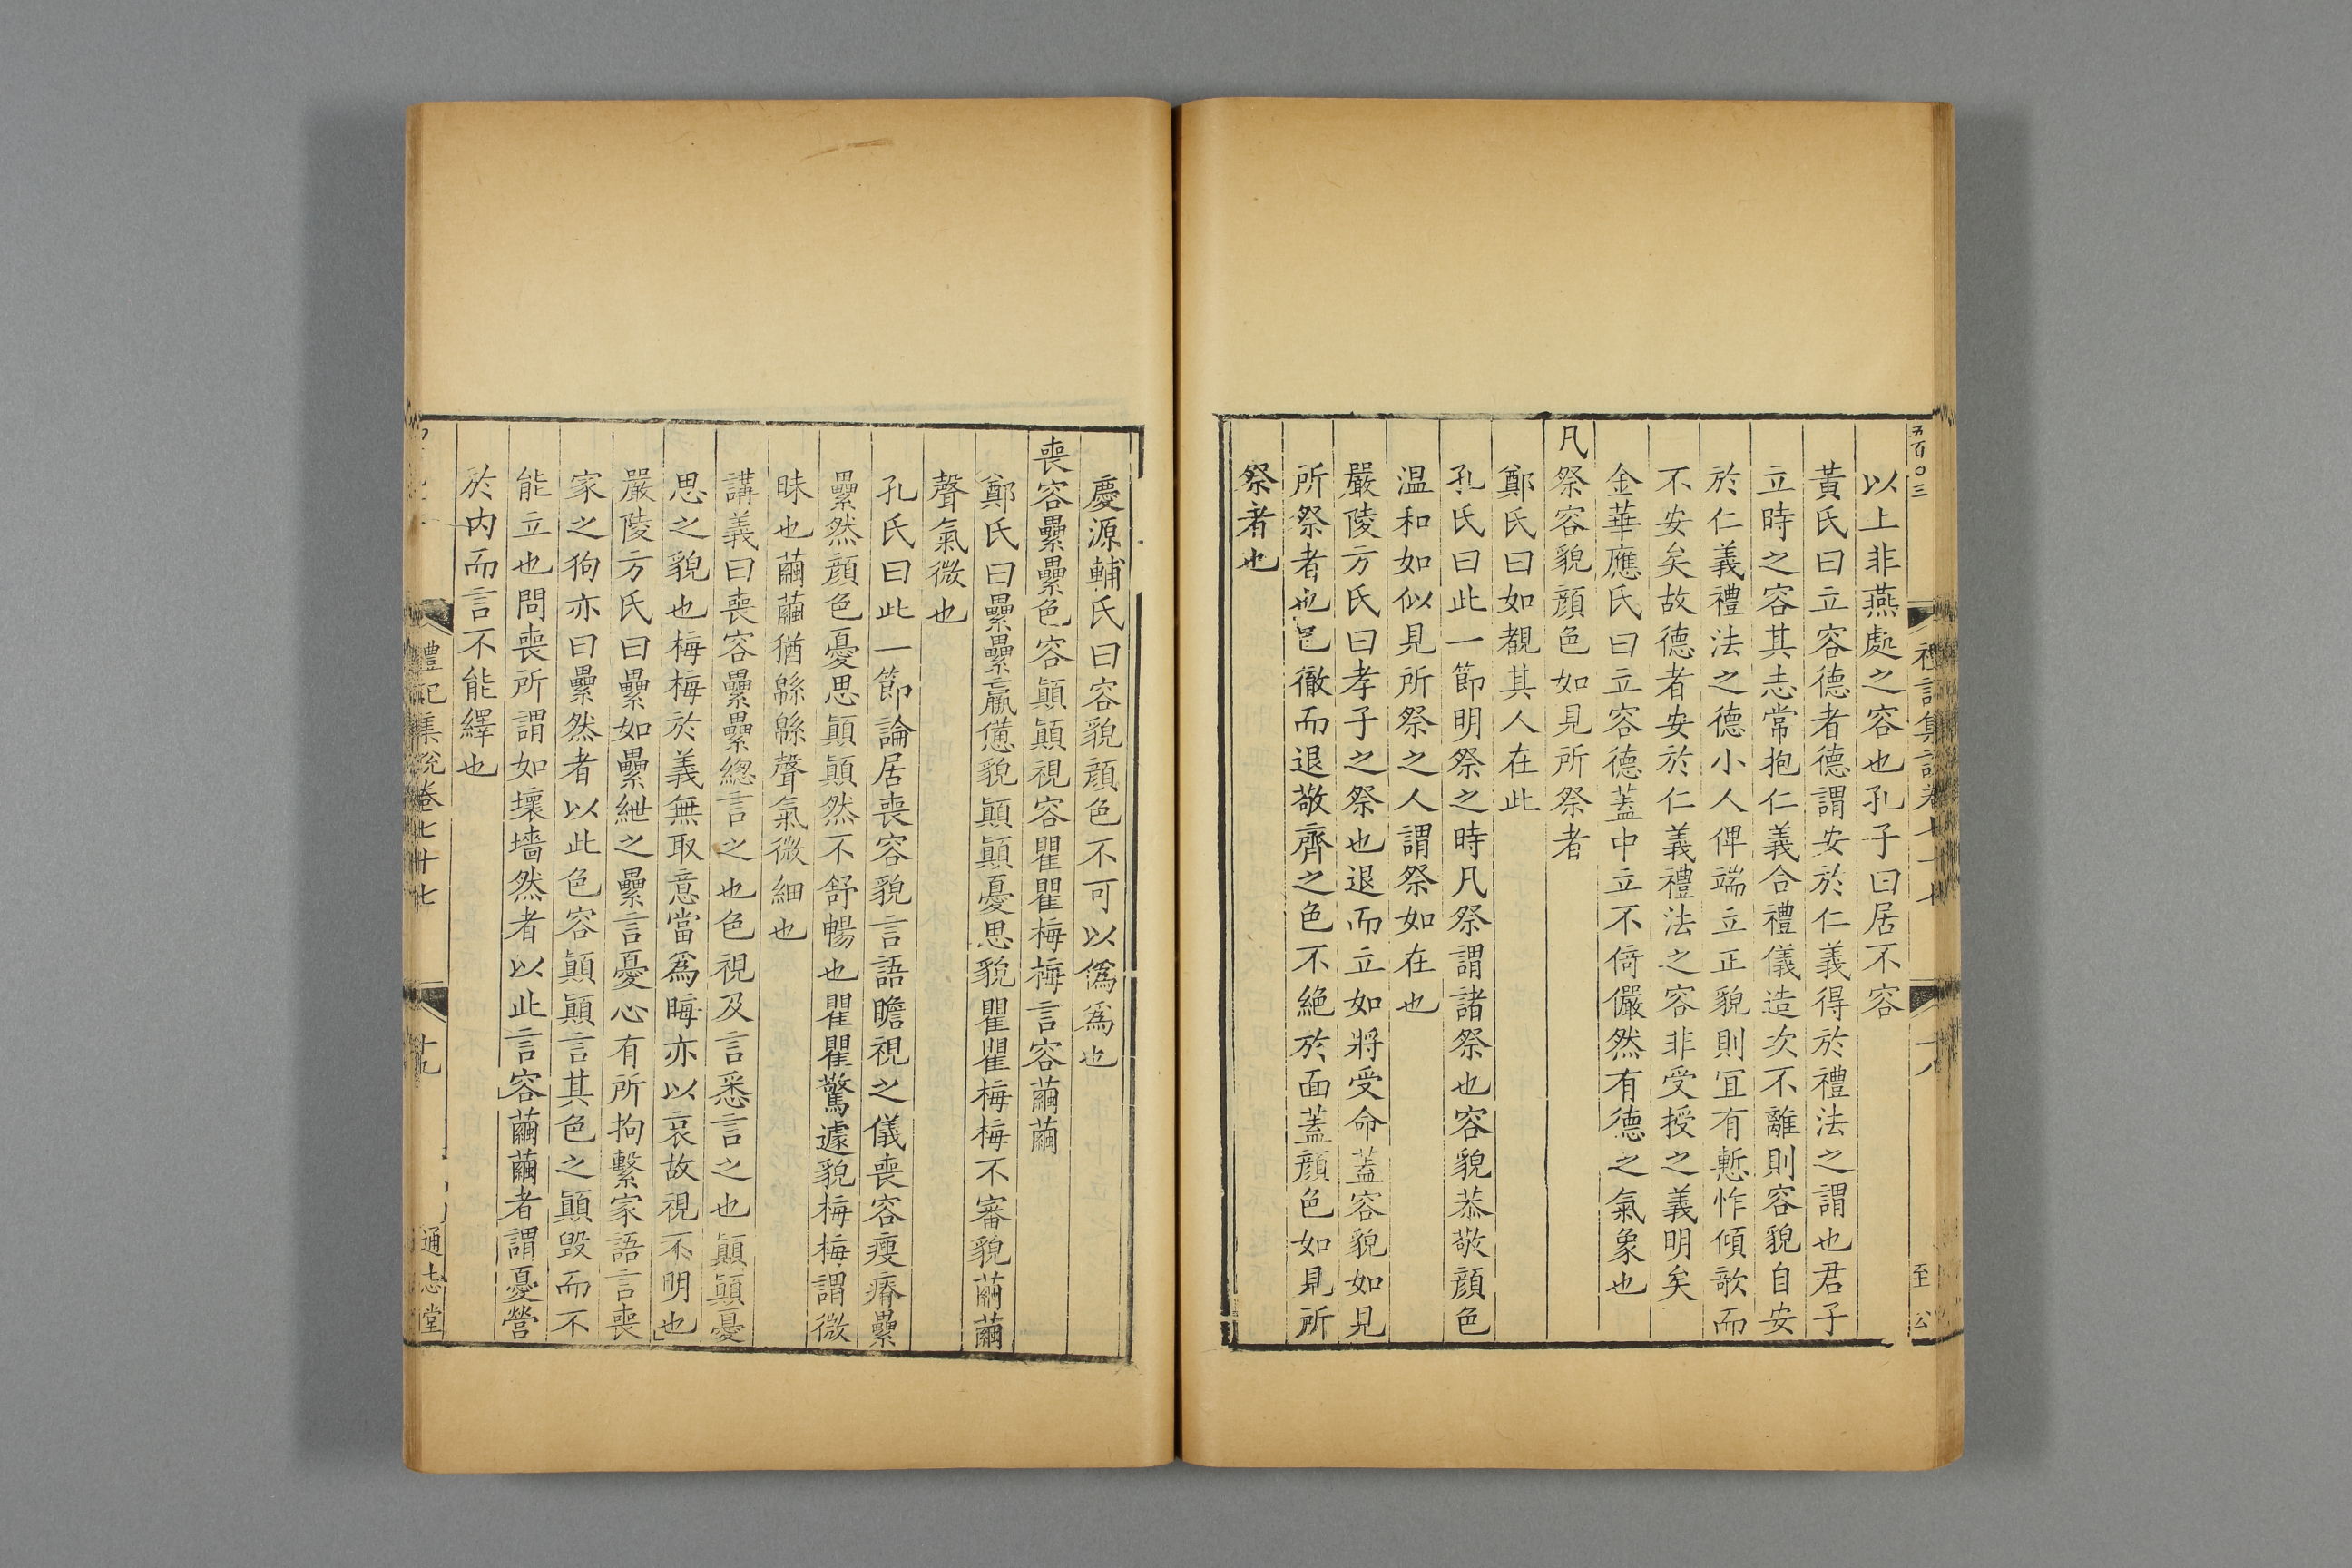 五百〇三
禮記集說卷七十七
十八
至公
以上非燕處之容也孔子曰居不容
黃氏曰立容德者德謂安於仁義得於禮法之謂也君子
立時之容其志常抱仁義合禮儀造次不離則容貌自安
於仁義禮法之德小人俾端立正貌則冝有慙怍傾欹而
不安矣故德者安於仁義禮法之容非受授之義明矣
金華應氏曰立容德蓋中立不倚儼然有德之氣象也
凡祭容貌顔色如見所祭者
鄭氏曰如覩其人在此
孔氏曰此一節明祭之時凡祭謂諸祭也容貌恭敬顔色
温和如似見所祭之人謂祭如在也
嚴陵方氏曰孝子之祭也退而立如將受命蓋容貌如見
所祭者也已徹而退敬齊之色不絶於面蓋顔色如見所
祭者也
慶源輔氏曰容貌顔色不可以僞爲也
喪容纍纍色容顚顚視容瞿瞿梅梅言容繭繭
鄭氏曰纍纍羸憊貌顚顚憂思貌瞿瞿梅梅不審貌繭繭
聲氣微也
孔氏曰此一節論居喪容貌言語瞻視之儀喪容瘦瘠纍
纍然顔色憂思顚顚然不舒暢也瞿瞿驚遽貌梅梅謂微
昧也繭繭猶緜緜聲氣微細也
講義曰喪容纍纍緫言之也色視及言悉言之也顚顚憂
思之貌也梅梅於義無取意當爲晦亦以哀故視不明也
嚴陵方氏曰纍如纍紲之纍言憂心有所拘繫家語言喪
家之狗亦曰纍然者以此色容顚顚言其色之顚毁而不
能立也問喪所謂如壞墻然者以此言容繭繭者謂憂營
於内而言不能繹也
禮記集說卷七十七
十九
通志堂